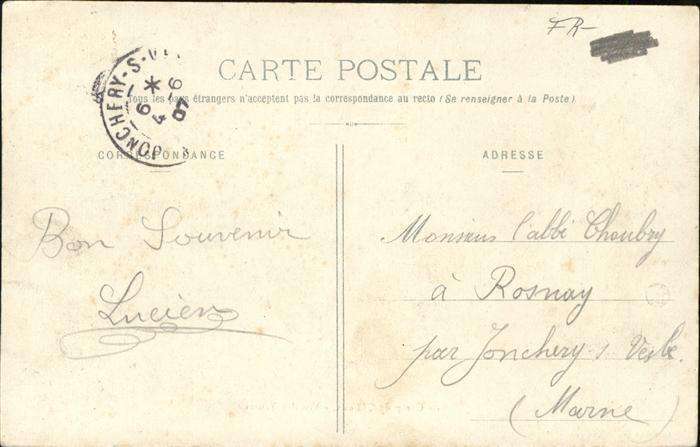 FR-
CARTE POSTALE
Tous les pays étrangers n'acceptent pas la correspondance au recto (Se renseigner à la Poste)
JONCHERY-S-V
6-6
07
CORRESPONDANCE
ADRESSE
Bon Souvenir
Lucien
Monsieur l'abbé Choubry
à Rosnay
par Jonchery s/ Vesle
(Marne)